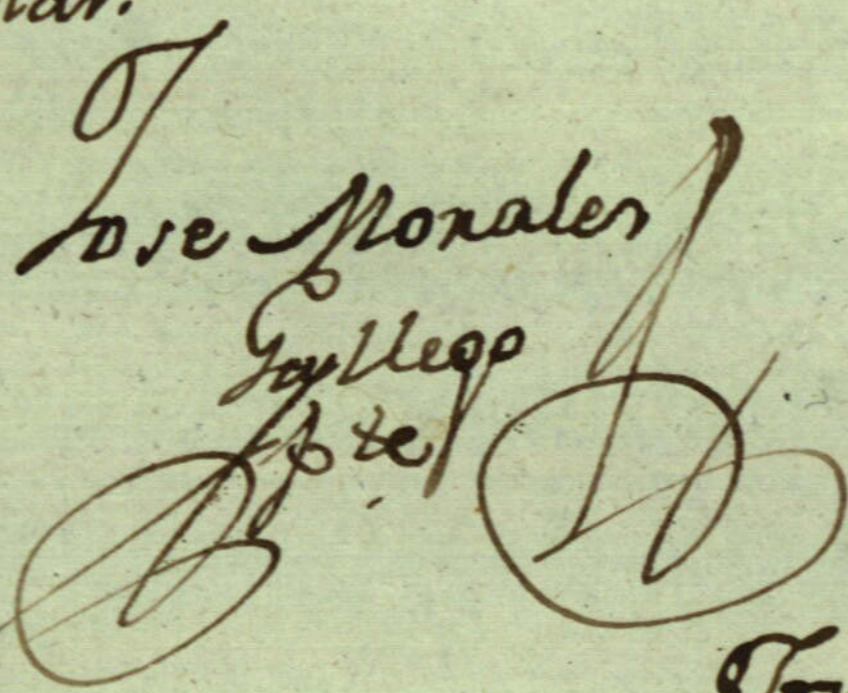 Jose Morales
Gallego
pte